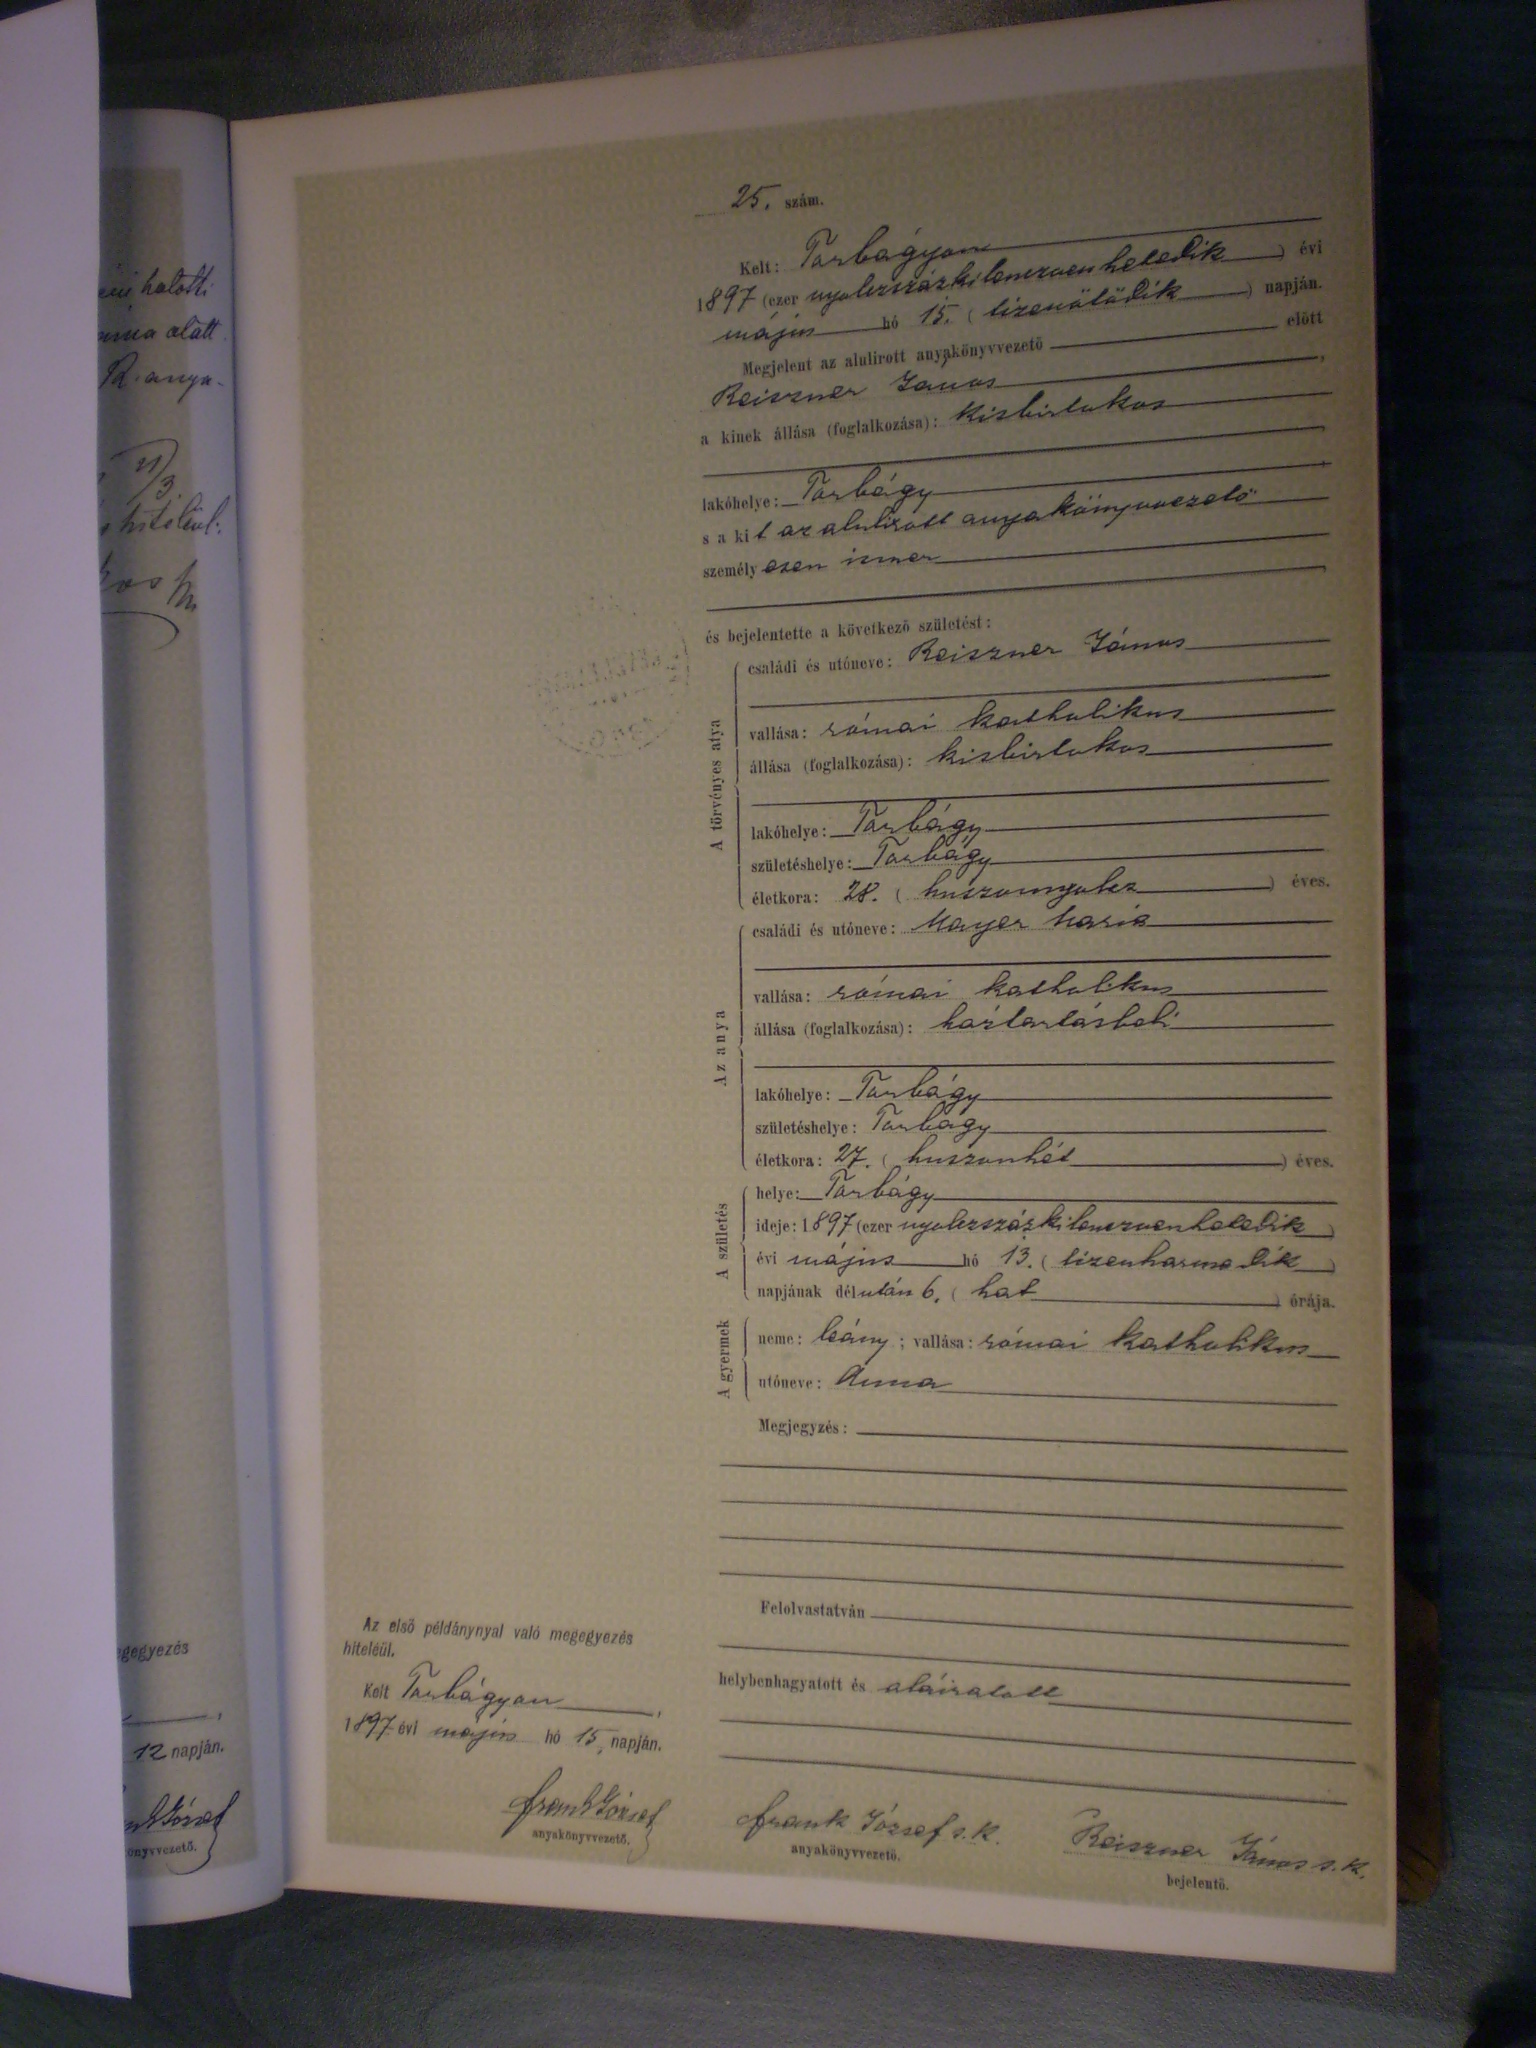 25. szám.
Kelt: Torbágyon
1897 (ezer nyolczszázkilenczvenhetedik) évi
május hó 15. (tizenötödik) napján.
Megjelent az alulirott anyakönyvvezető előtt
Reiszner János,
a kinek állása (foglalkozása): kisbirtokos
lakóhelye: Torbágy
s a kit az alulirott anyakönyvvezető
személyesen ismer
és bejelentette a következő születést:
A törvényes atya
családi és utóneve: Reiszner János
vallása: római katholikus
állása (foglalkozása): kisbirtokos
lakóhelye: Torbágy
születéshelye: Torbágy
életkora: 28. (huszonnyolcz) éves.
Az anya
családi és utóneve: Mayer Mária
vallása: római katholikus
állása (foglalkozása): háztartásbeli
lakóhelye: Torbágy
születéshelye: Torbágy
életkora: 27. (huszonhét) éves.
A születés
helye: Torbágy
ideje: 1897 (ezer nyolczszázkilenczvenhetedik)
évi május hó 13. (tizenharmadik)
napjának délután 6. (hat) órája.
A gyermek
neme: leány; vallása: római katholikus
utóneve: Anna
Megjegyzés:
Felolvastatván
helybenhagyatott és aláiratott
Frank József s.k.
anyakönyvvezető.
Reiszner János s.k.
bejelentő.
Az első példánynyal való megegyezés
hiteléül.
Kelt Torbágyon,
1897 évi május hó 15, napján.
Frank József
anyakönyvvezető.
halotti
alatt
R. anya-
21/3
hiteléül:
megegyezés
12 napján.
József
anyakönyvvezető.